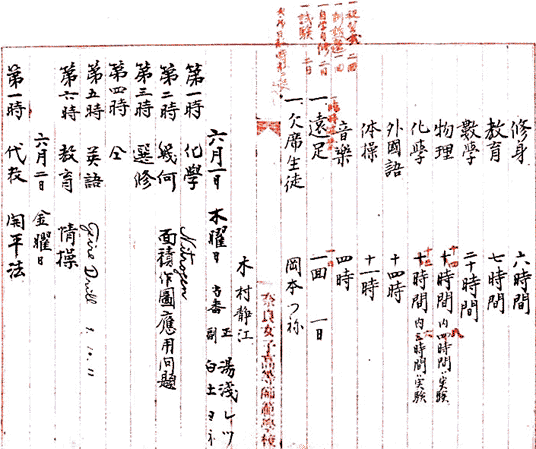 一祝賀式 一回
一自学自修 二日
一試験 二日
修身 六時間
教育 七時間
數學 二十時間
物理 十時間 内四時間ハ実験
化學 十時間 内三時間ハ実験
外國語 十四時
体操 十一時
音樂 四時
一遠足 一回 一日
一欠席生徒 岡本つね
奈良女子高等師範學校
木村静江
六月一日 木曜日 当番 正 湯淺しツ
副 白土ヨネ
第一時 化学 Nitrogen
第二時 幾何 面積作圖應用问題
第三時 選修
第四時 仝
第五時 英語 Fire Drill 9.10.11
第六時 教育 情操
六月二日 金曜日
第一時 代数 開平法